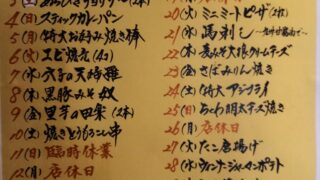 4(日) スティックカレーパン
5(月) 特大お好み焼き棒
6(火) エビ焼売(4コ)
7(水) 穴子の天時雅
8(木) 黒豚みそ奴
9(金) 里芋の田楽(2本)
10(土) 焼きとうもろこし串
11(日) 臨時休業
12(月) 店休日
20(火) ミニミートピザ(2枚)
21(水) 馬刺し
22(木) 麦みそ大根クリームチーズ
23(金) さばみりん焼き
24(土) 特大アジフライ
25(日) ちくわ明太チーズ焼き
26(月) 店休日
27(火) たこ唐揚げ
28(水) ウィンナージャーマンポテト